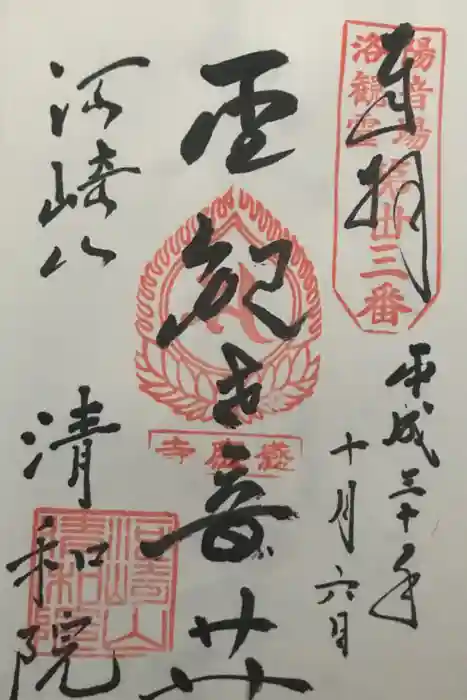 奉拝
洛陽
観音
霊場
第卅三番
平成三十年
十月六日
聖観世音
感應寺
河崎山
清和院
河崎山
清和院